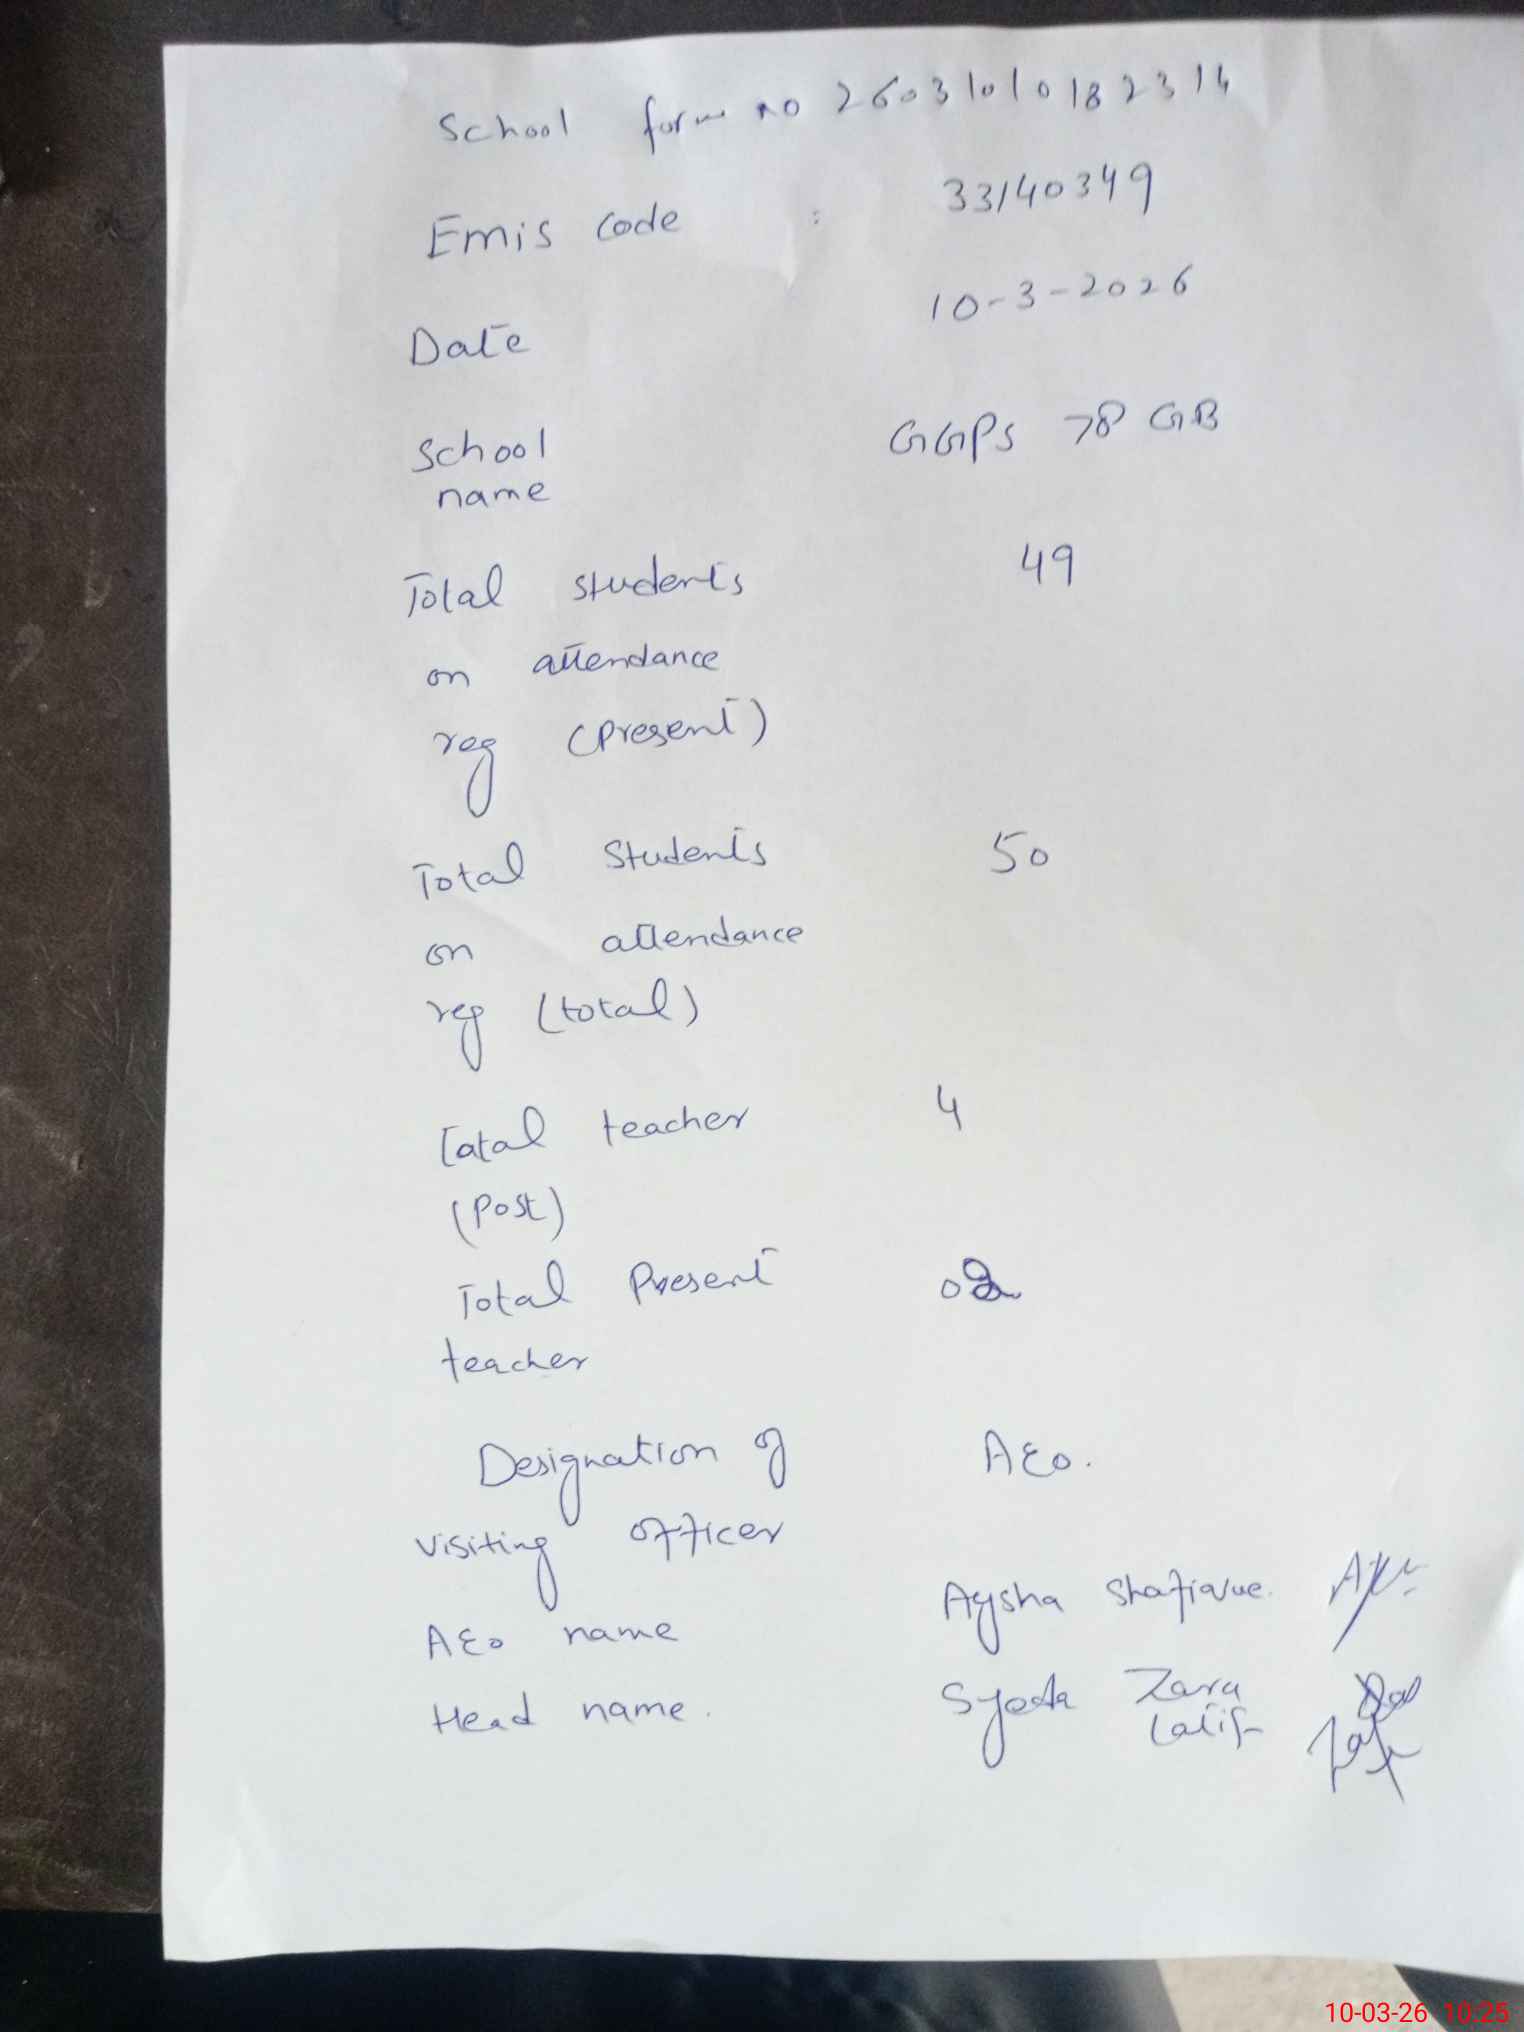 School form no 2603101018 2314
Emis code : 33140349
Date 10-3-2026
School GGPS 78 GB
name
Total students 49
on attendance
reg (present)
Total Students 50
on attendance
reg (total)
Total teacher 4
(Post)
Total Present 02
teacher
Designation of AEO.
visiting officer
AEO name Aysha Shafique.
Head name. Syeda Zara
Latif
10-03-26 10:25